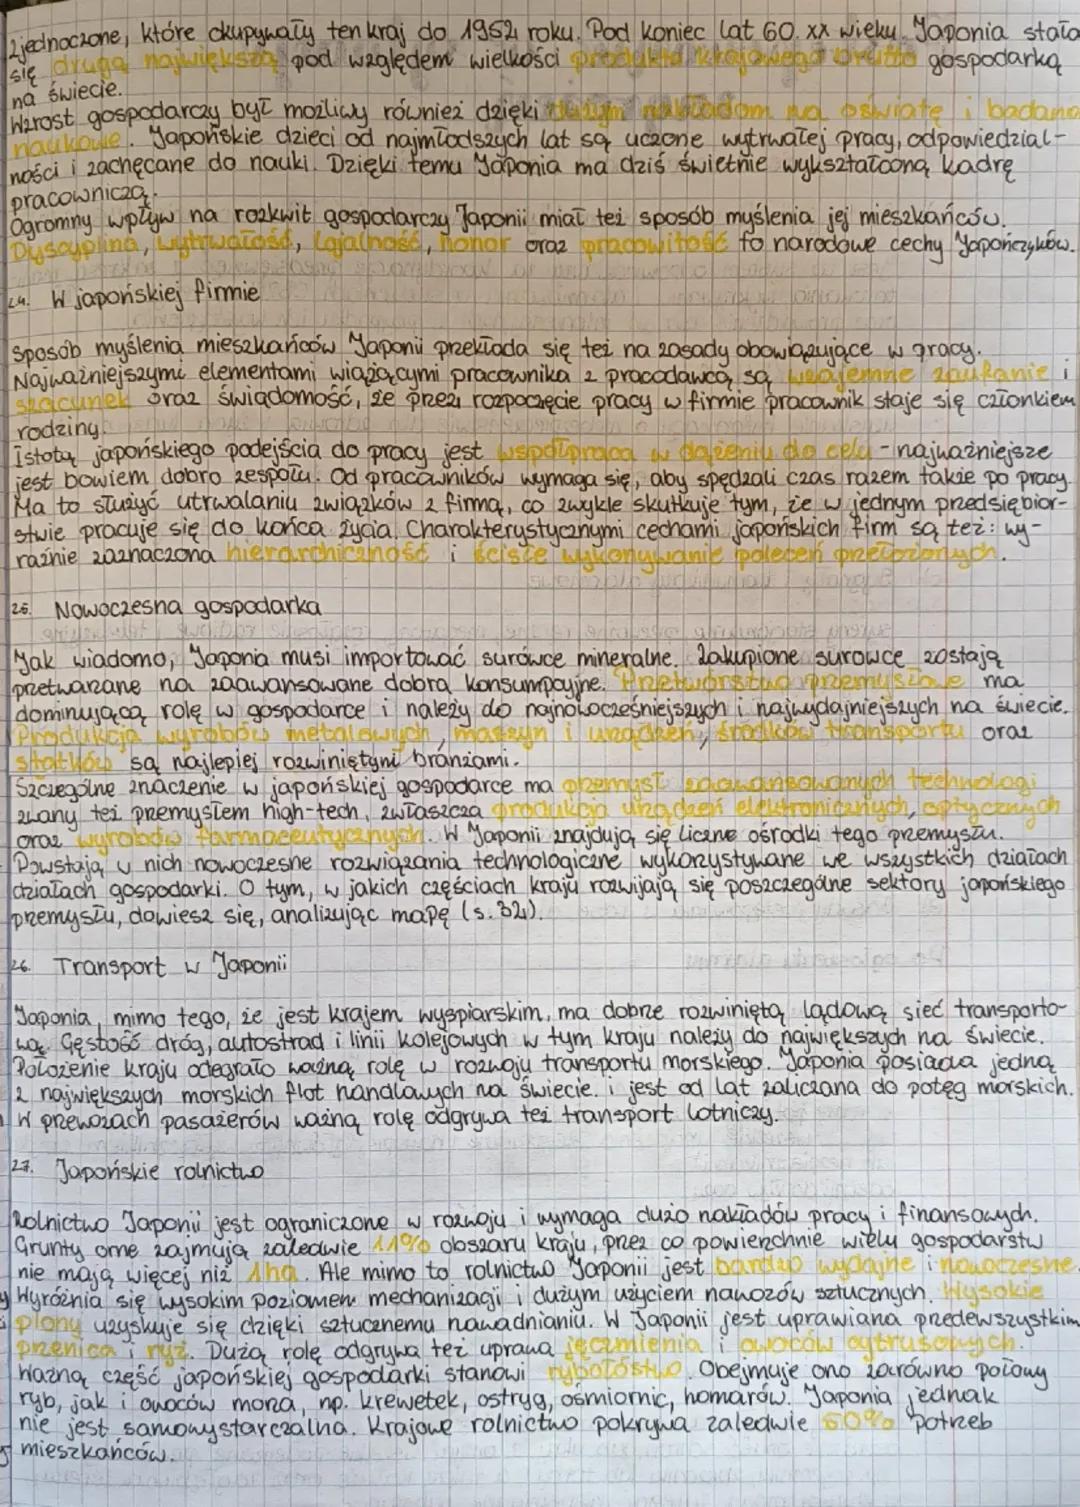 Zjednoczone, które okupywały ten kraj do 1952 roku. Pod koniec lat 60. xx wieku Japonia stała
się drugą największą pod względem wielkości produktu krajowego brutto gospodarką
na świecie.
Wzrost gospodarczy był możliwy również dzięki dużym nakładom na oświatę i badania
naukowe. Japońskie dzieci od najmłodszych lat są uczone wytrwałej pracy, odpowiedzial-
ności i zachęcane do nauki. Dzięki temu Japonia ma dziś świetnie wykształconą kadrę
pracowniczą.
Ogromny wpływ na rozkwit gospodarczy Japonii miał też sposób myślenia jej mieszkańców.
Dyscyplina, wytrwałość, lojalność, honor oraz pracowitość to narodowe cechy Japończyków.
24. W japońskiej firmie
Sposób myślenia mieszkańców Japonii przekłada się też na zasady obowiązujące w pracy.
Najważniejszymi elementami wiążącymi pracownika z pracodawcą są wzajemne zaufanie i
szacunek oraz świadomość, że przez rozpoczęcie pracy w firmie pracownik staje się członkiem
rodziny.
Istotą japońskiego podejścia do pracy jest współpraca w dążeniu do celu - najważniejsze
jest bowiem dobro zespołu. Od pracowników wymaga się, aby spędzali czas razem także po pracy.
Ma to służyć utrwalaniu związków z firmą, co zwykle skutkuje tym, że w jednym przedsiębior-
stwie pracuje się do końca życia. Charakterystycznymi cechami japońskich firm są też: wy-
raźnie zaznaczona hierarchiczność i ścisłe wykonywanie poleceń przełożonych.
25. Nowoczesna gospodarka
Jak wiadomo, Japonia musi importować surówce mineralne. Zakupione surowce zostają
przetwarzane na zaawansowane dobra konsumpcyjne. Przetwórstwo przemysłowe ma
dominującą rolę w gospodarce i należy do najnowocześniejszych i najwydajniejszych na świecie.
Produkcja wyrobów metalowych, maszyn i urządzeń, środków transportu oraz
statków są najlepiej rozwiniętymi branżami.
Szczególne znaczenie w japońskiej gospodarce ma przemysł zaawansowanych technologi
zwany też przemysłem high-tech, zwłaszcza produkcja urządzeń elektronicznych, optycznych
oraz wyrobów farmaceutycznych. W Japonii znajdują się liczne ośrodki tego przemysłu.
Powstają w nich nowoczesne rozwiązania technologiczne wykorzystywane we wszystkich działach
działach gospodarki. O tym, w jakich częściach kraju rozwijają się poszczególne sektory japońskiego
przemysłu, dowiesz się, analizując mapę (s. 32).
26. Transport w Japonii
Japonia, mimo tego, że jest krajem wyspiarskim, ma dobrze rozwiniętą lądową sieć transporto-
wą. Gęstość dróg, autostrad i linii kolejowych w tym kraju należy do największych na świecie.
Położenie kraju odegrało ważną rolę w rozwoju transportu morskiego. Japonia posiada jedną
z największych morskich flot handlowych na świecie. i jest od lat zaliczana do potęg morskich.
W przewozach pasażerów ważną rolę odgrywa też transport lotniczy.
27. Japońskie rolnictwo
Rolnictwo Japonii jest ograniczone w rozwoju i wymaga dużo nakładów pracy i finansowych.
Grunty orne zajmują zaledwie 11% obszaru kraju, przez co powierzchnie wielu gospodarstw
nie mają więcej niż 1ha. Ale mimo to rolnictwo Japonii jest bardzo wydajne i nowoczesne.
Wyróżnia się wysokim poziomem mechanizagji i dużym użyciem nawozów sztucznych. Wysokie
plony uzyskuje się dzięki sztucznemu nawadnianiu. W Japonii jest uprawiana przedewszystkim
pszenica i ryż. Dużą rolę odgrywa też uprawa jęczmienia i owoców cytrusowych.
Ważną część japońskiej gospodarki stanowi rybołóstwo. Obejmuje ono zarówno połowy
ryb, jak i owoców morza, np. krewetek, ostryg, ośmiornic, homarów. Japonia jednak
nie jest samowystarczalna. Krajowe rolnictwo pokrywa zaledwie 60% potrzeb
mieszkańców.